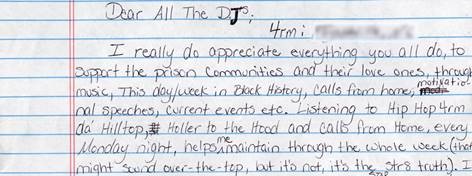 Dear All The DJs;
4rm:
I really do appreciate everything you all do, to
support the prison communities and their love ones, through
music, This day/week in Black History, calls from home, motivatio
nal speeches, current events etc. Listening to Hip Hop 4rm
da' Hilltop, Holler to the Hood and calls From Home, every
Monday night, helps me maintain through the whole week (that
might sound over-the-top, but it's not, it's the str8 truth). I